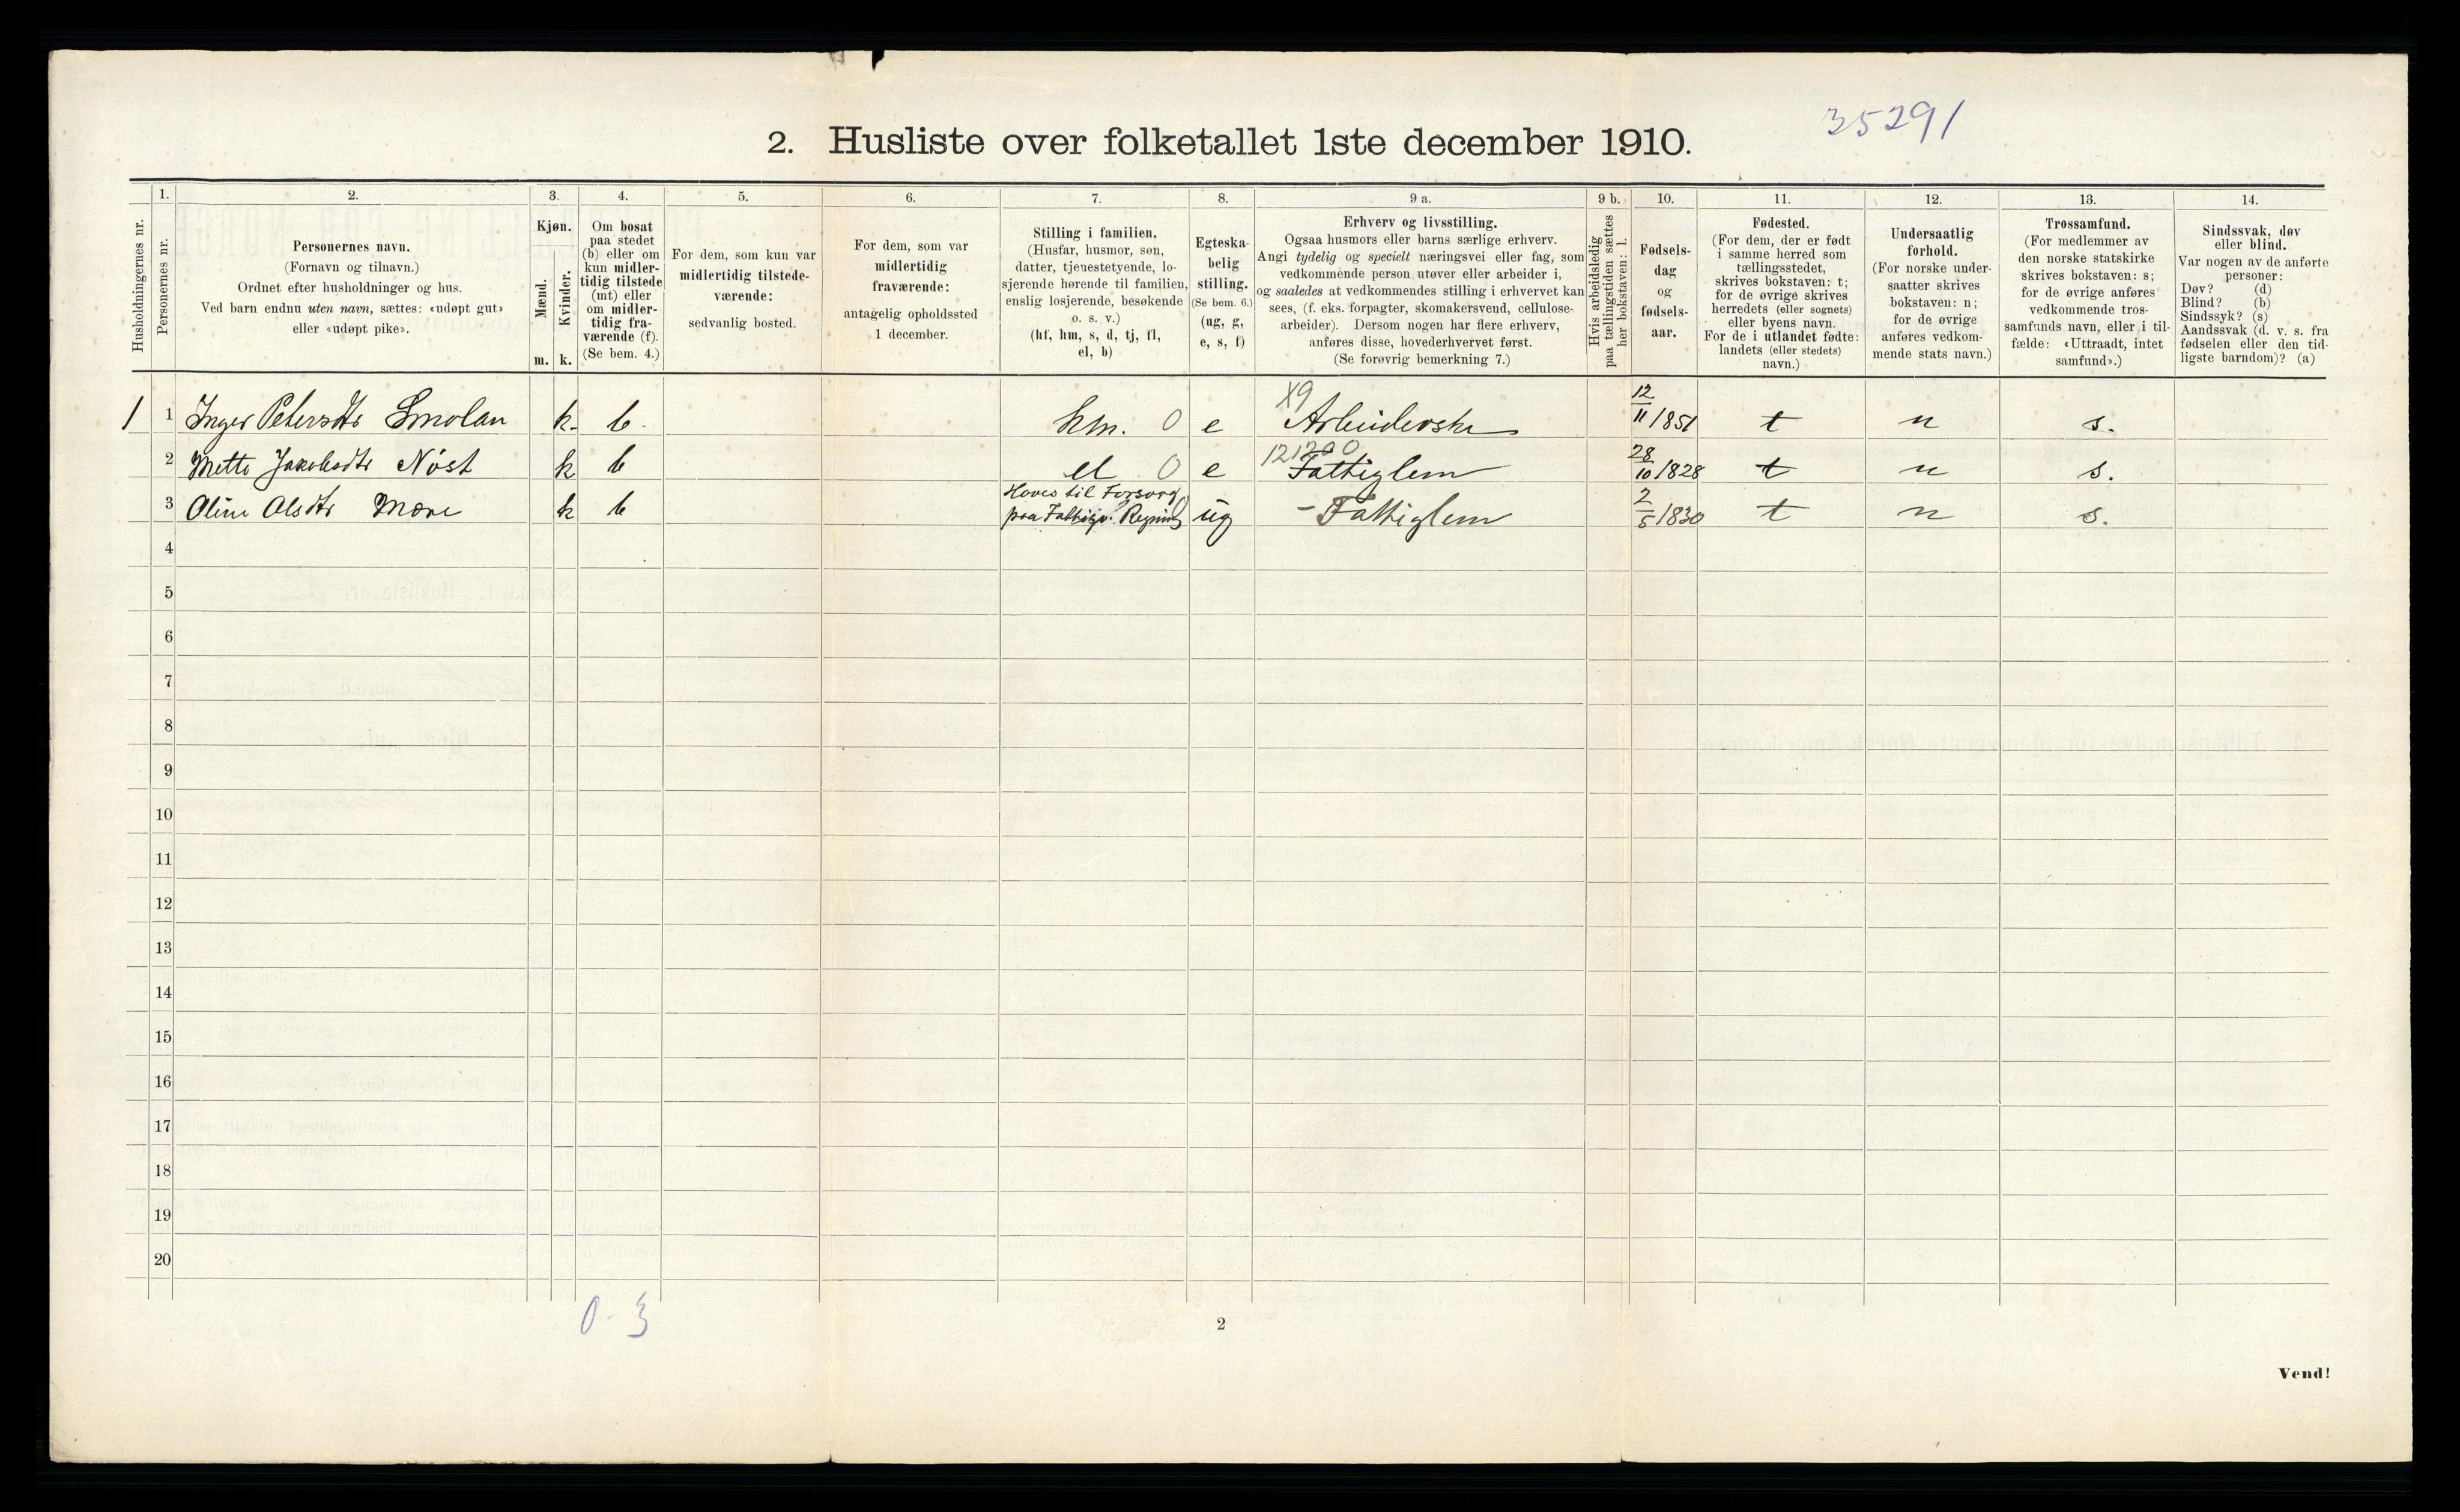 35291
2. Husliste over folketallet 1ste december 1910.
1. 2. 3. 4. 5. 6. 7. 8. 9 a. 9 b. 10. 11. 12. 13. 14.
Husholdningernes nr.
Personernes nr.
Personernes navn.
(Fornavn og tilnavn.)
Ordnet efter husholdninger og hus.
Ved barn endnu uten navn, sættes: «udøpt gut»
eller «udøpt pike».
Kjøn.
Mænd.
Kvinder.
m. k.
Om bosat
paa stedet
(b) eller om
kun midler-
tidig tilstede
(mt) eller
om midler-
tidig fra-
værende (f).
(Se bem. 4.)
For dem, som kun var
midlertidig tilstede-
værende:
sedvanlig bosted.
For dem, som var
midlertidig
fraværende:
antagelig opholdssted
1 december.
Stilling i familien.
(Husfar, husmor, søn,
datter, tjenestetyende, lo-
sjerende hørende til familien,
enslig losjerende, besøkende
o. s. v.)
(hf, hm, s, d, tj, fl,
el, b)
Egteska-
belig
stilling.
(Se bem. 6.)
(ug, g,
e, s, f)
Erhverv og livsstilling.
Ogsaa husmors eller barns særlige erhverv.
Angi tydelig og specielt næringsvei eller fag, som
vedkommende person utøver eller arbeider i,
og saaledes at vedkommendes stilling i erhvervet kan
sees, (f. eks. forpagter, skomakersvend, cellulose-
arbeider). Dersom nogen har flere erhverv,
anføres disse, hovederhvervet først.
(Se forøvrig bemerkning 7.)
Hvis arbeidsledig
paa tællingstiden sættes
her bokstaven: l.
Fødsels-
dag
og
fødsels-
aar.
Fødested.
(For dem, der er født
i samme herred som
tællingsstedet,
skrives bokstaven: t;
for de øvrige skrives
herredets (eller sognets)
eller byens navn.
For de i utlandet fødte:
landets (eller stedets)
navn.)
Undersaatlig
forhold.
(For norske under-
saatter skrives
bokstaven: n;
for de øvrige
anføres vedkom-
mende stats navn.)
Trossamfund.
(For medlemmer av
den norske statskirke
skrives bokstaven: s;
for de øvrige anføres
vedkommende tros-
samfunds navn, eller i til-
fælde: «Uttraadt, intet
samfund».)
Sindssvak, døv
eller blind.
Var nogen av de anførte
personer:
Døv? (d)
Blind? (b)
Sindssyk? (s)
Aandssvak (d. v. s. fra
fødselen eller den tid-
ligste barndom)? (a)
X9
1 1 Inger Petersdtr Smolan k. b. hm. 0 e Arbeiderske 12/11 1851 t n s.
121200
2 Mette Jakobsdtr Nöst k b el 0 e Fattiglem 28/10 1828 t n s.
Haves til Forsorg
3 Oline Olsdtr Mære k b paa Fattigv. Regning ug - Fattiglem 2/5 1830 t n s.
4
5
6
7
8
9
10
11
12
13
14
15
16
17
18
19
20
0-3
2
Vend!